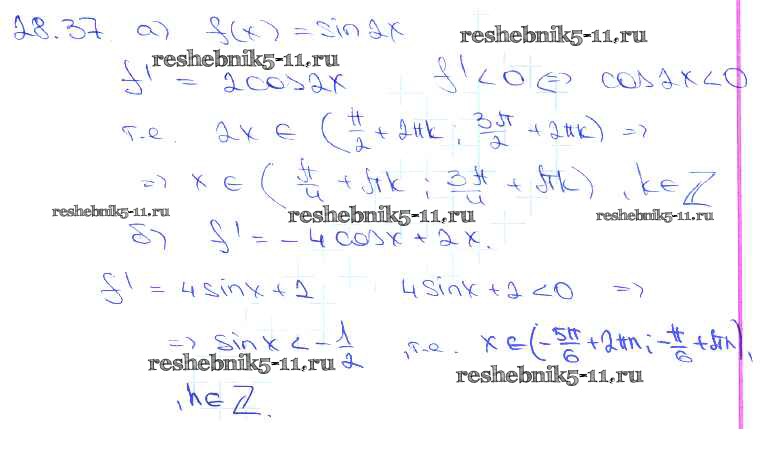 28.37 а) f(x) = sin 2x reshebnik5-11.ru
reshebnik5-11.ru
f' = 2cos2x f' < 0 <=> cos2x < 0
т.е. 2x ∈ (π/2 + 2πk ; 3π/2 + 2πk) =>
=> x ∈ (π/4 + πk ; 3π/4 + πk) , k ∈ Z
reshebnik5-11.ru reshebnik5-11.ru reshebnik5-11.ru
б) f' = -4cosx + 2x.
f' = 4sinx + 2 4sinx + 2 < 0 =>
=> sinx < -1/2 , т.е. x ∈ (-5π/6 + 2πn ; -π/6 + πn),
reshebnik5-11.ru reshebnik5-11.ru
, n ∈ Z.